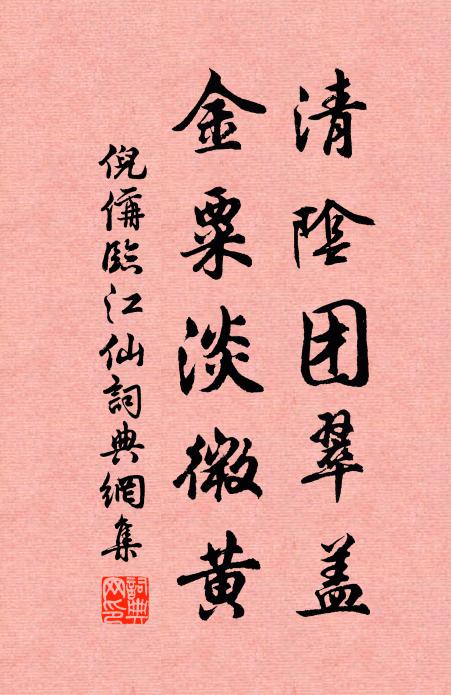 清陰团翠盖
金粟淡微黄
倪偁臨江仙詞典網集
詞典网印